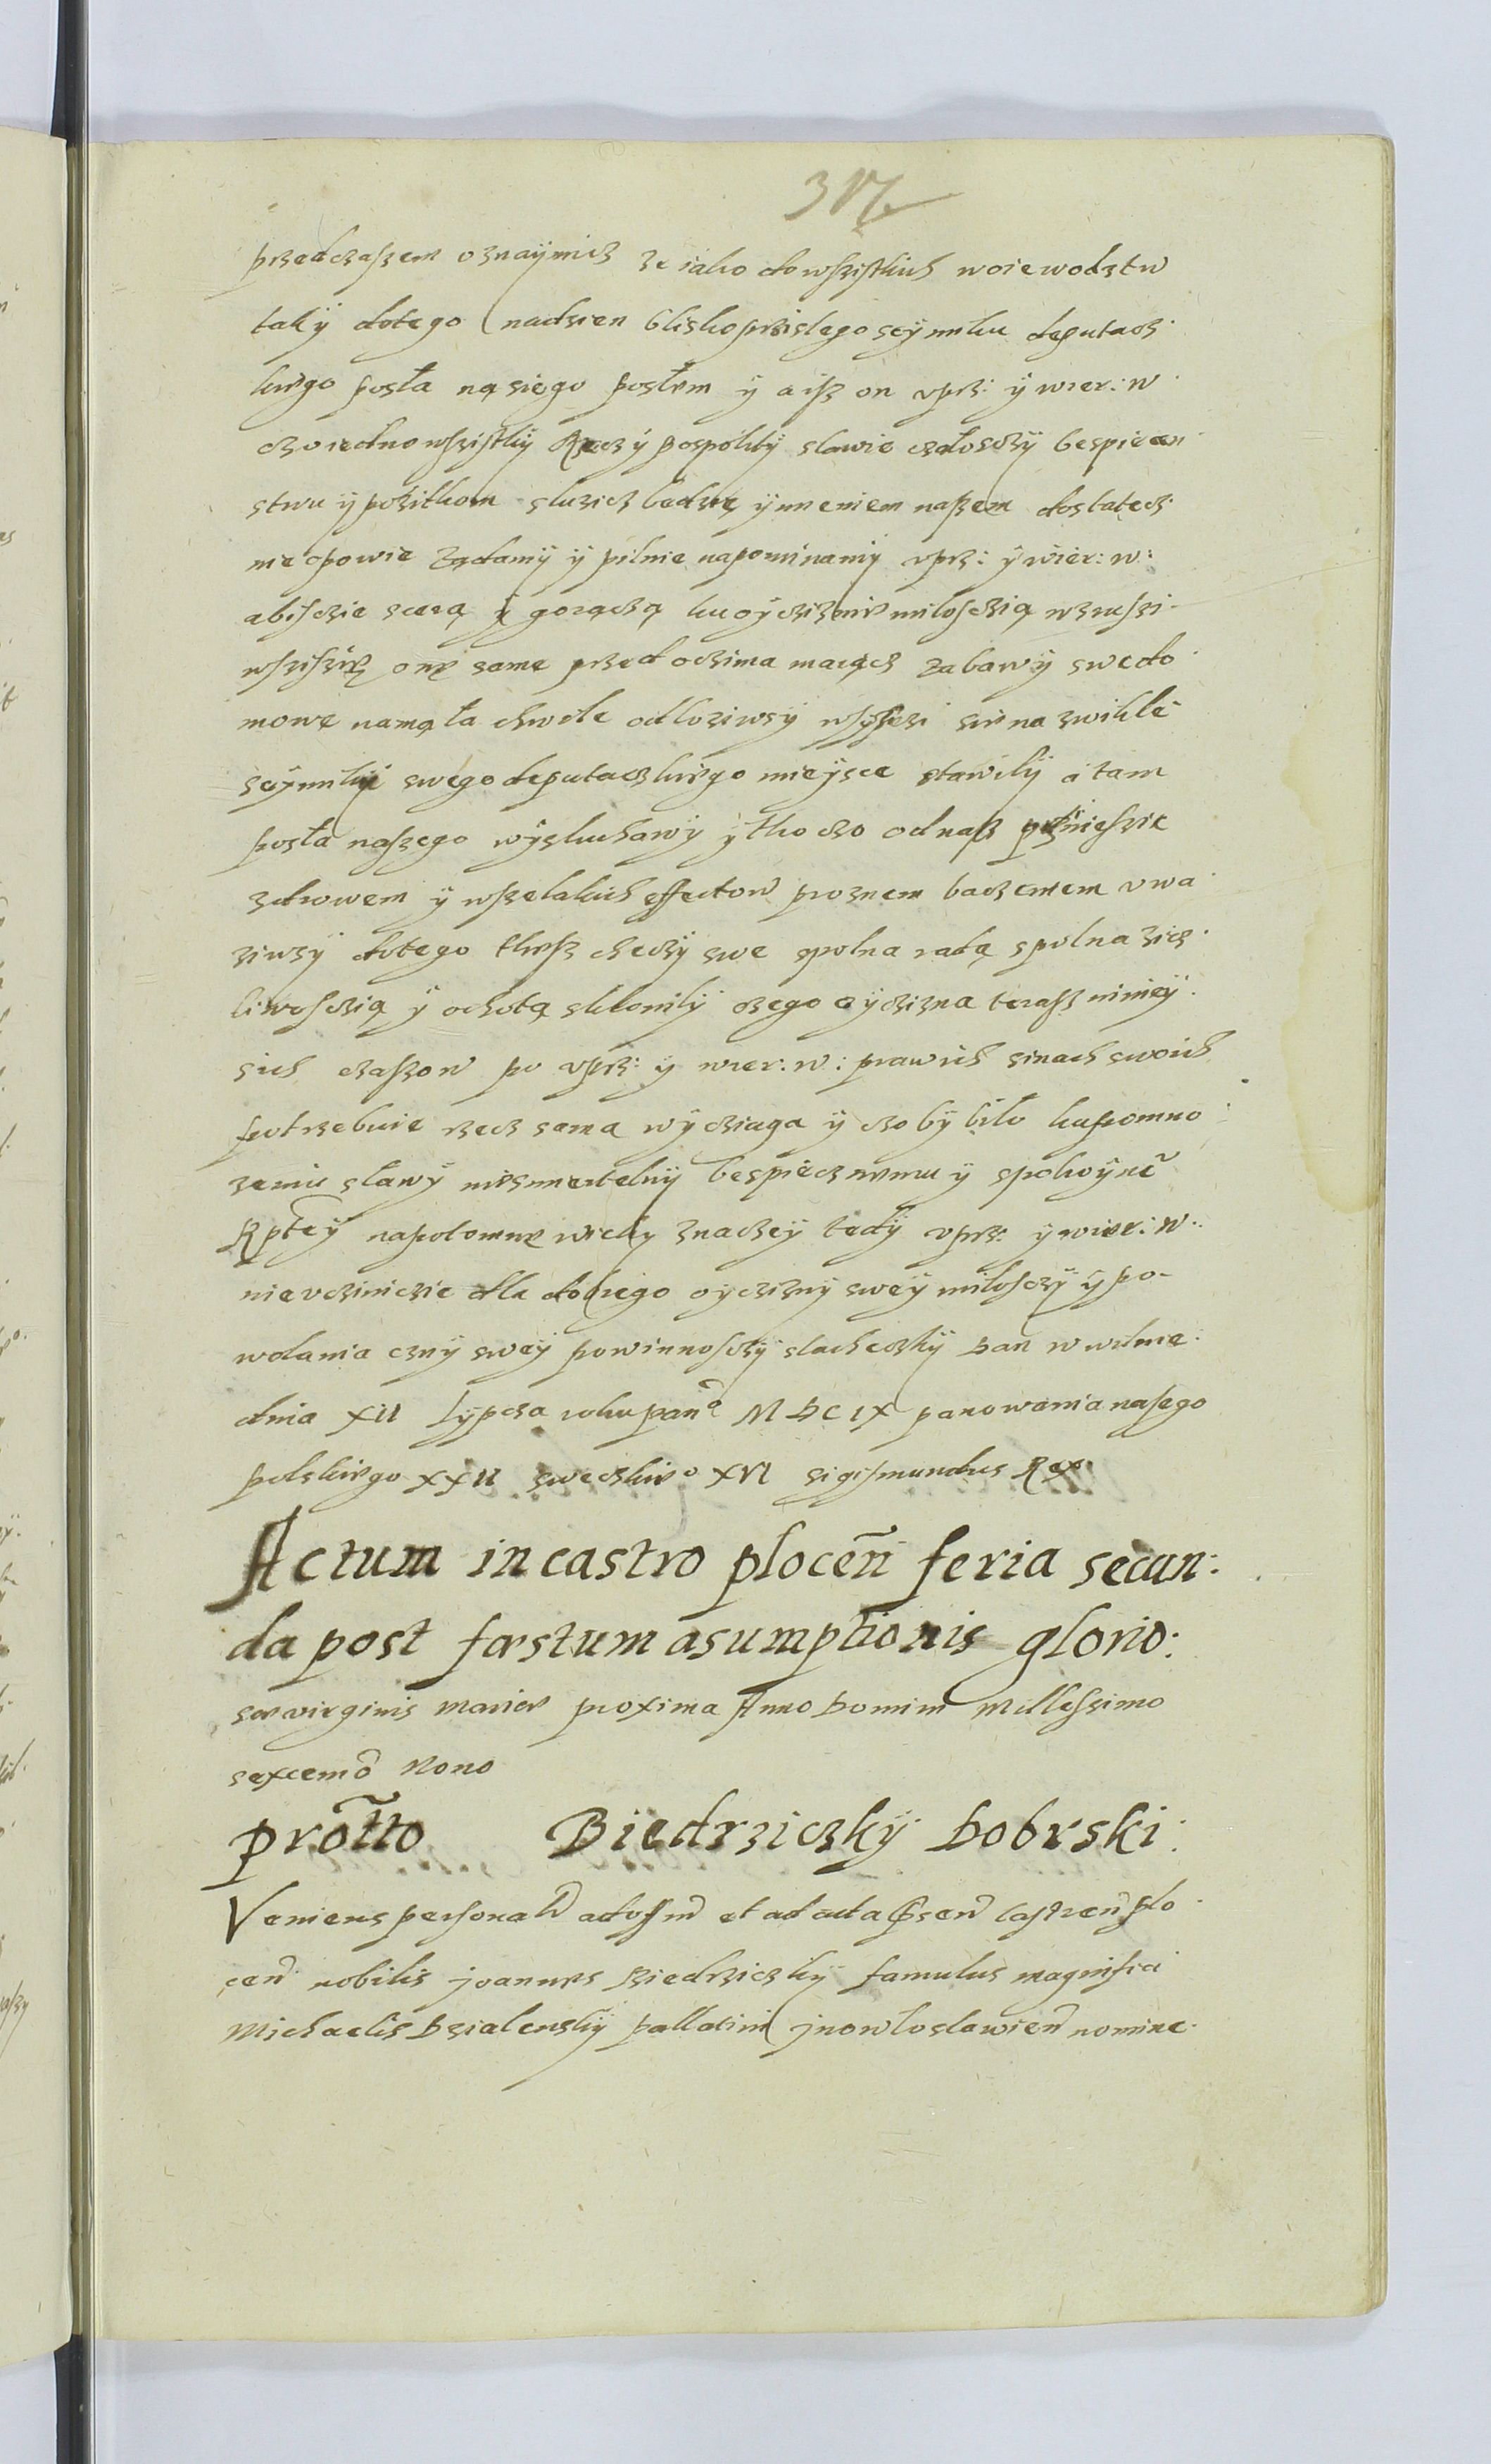 317
przedczaßem oznaÿmicz ze iako dowszistkich woiewodztw
takÿ dotego nadzien bliskoprzislego seÿmiku deputacz
kiego posła nasiego poslem ÿ a isz on vprz: ÿ wier: w
czo iedno wszistkÿ Rzeczÿ pospolitÿ slawie człosczÿ bespiecżen
stwu ÿ pożitkom sluzicz bedzie ÿmeniem naßem dostatecz
nie opowie Żądamÿ ÿ pilnie napominamÿ vprz: ÿ wier: w:
abisczie scerą ÿ gorączą ku oÿcziznie miłosczią wzruszi
wszisżie one same przed oczima maiącz zabawÿ swe do
mowe namąła chwile odlożiwsÿ wszÿszci sie na zwikłe
seÿmikÿ swego deputaczkiego mieÿsce stawilÿ a tam
posła naszego wÿsluchawÿ ÿ tho czo od nasz prżÿniesie
zdrowem ÿ wszelakich effectow proznem baczeniem vwa
ziwsÿ dotego thesz checzÿ swe spolna radą spolna zicz
liwosczią ÿ ochotą sklonilÿ czego oÿczizna terasz nineÿ
sich czaszow po vprz: ÿ wier: w: prawich sinach swoich
potrzebuie rzecz sama wÿcziaga ÿ czo bÿ bilo ku pomno
zeniu sławÿ niesmiertelnÿ bespiecznemu ÿ spokoÿnẽ
Rptey napotomne wieky znaczeÿ tedÿ vprz: ÿ wier: w:
nie vcziniczie dla dobrego oÿcziznÿ sweÿ miłosczÿ ÿ po-
wolania cznÿ sweÿ powinnosczÿ slacheczkÿ Dan w wilnie
dnia XII Lÿpcza roku panᵃ M DC IX panowania nasego
polskiego XXII swedskieᵒ XVI sigismundus Rex
Actum in castro plocen̄ feria secun:
da post festum asumptionis glorio:
sae virginis Mariae proxima Anno Domini Millessimo
sexcemõ Nono
prottõ Biedrziczkÿ Dobrski
Veniens personalr̃ ad offm̃ et ad acta p̃sen̄ castren̄ plo
cen̄ nobilis joannes Biedrziczkÿ famulus magnifici
Michaelis Dzialenskÿ pallatini jnowloslawien̄ nomine